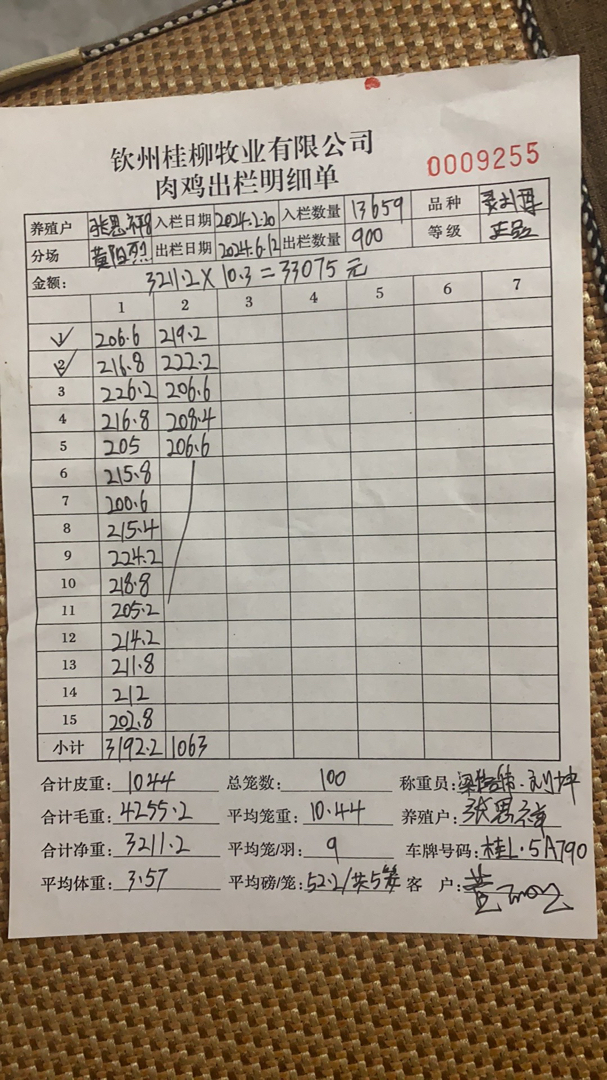 钦州桂柳牧业有限公司
肉鸡出栏明细单 0009255
养殖户 张思祥 入栏日期 2024.2.20 入栏数量 13659 品种
分场 黄阳烈 出栏日期 2024.6.12 出栏数量 900 等级 正品
金额: 3211.2 × 10.3 = 33075 元
1 2 3 4 5 6 7
1 206.6 219.2
2 216.8 222.2
3 226.2 206.6
4 216.8 208.4
5 205 206.6
6 215.8
7 200.6
8 215.4
9 224.2
10 218.8
11 205.2
12 214.2
13 211.8
14 212
15 202.8
小计 3192.2 1063
合计皮重: 1044 总笼数: 100 称重员:
合计毛重: 4255.2 平均笼重: 10.44 养殖户: 张思祥
合计净重: 3211.2 平均笼/羽: 9 车牌号码: 桂L·5A790
平均体重: 3.57 平均磅/笼: 52.2/共5笼 客 户: